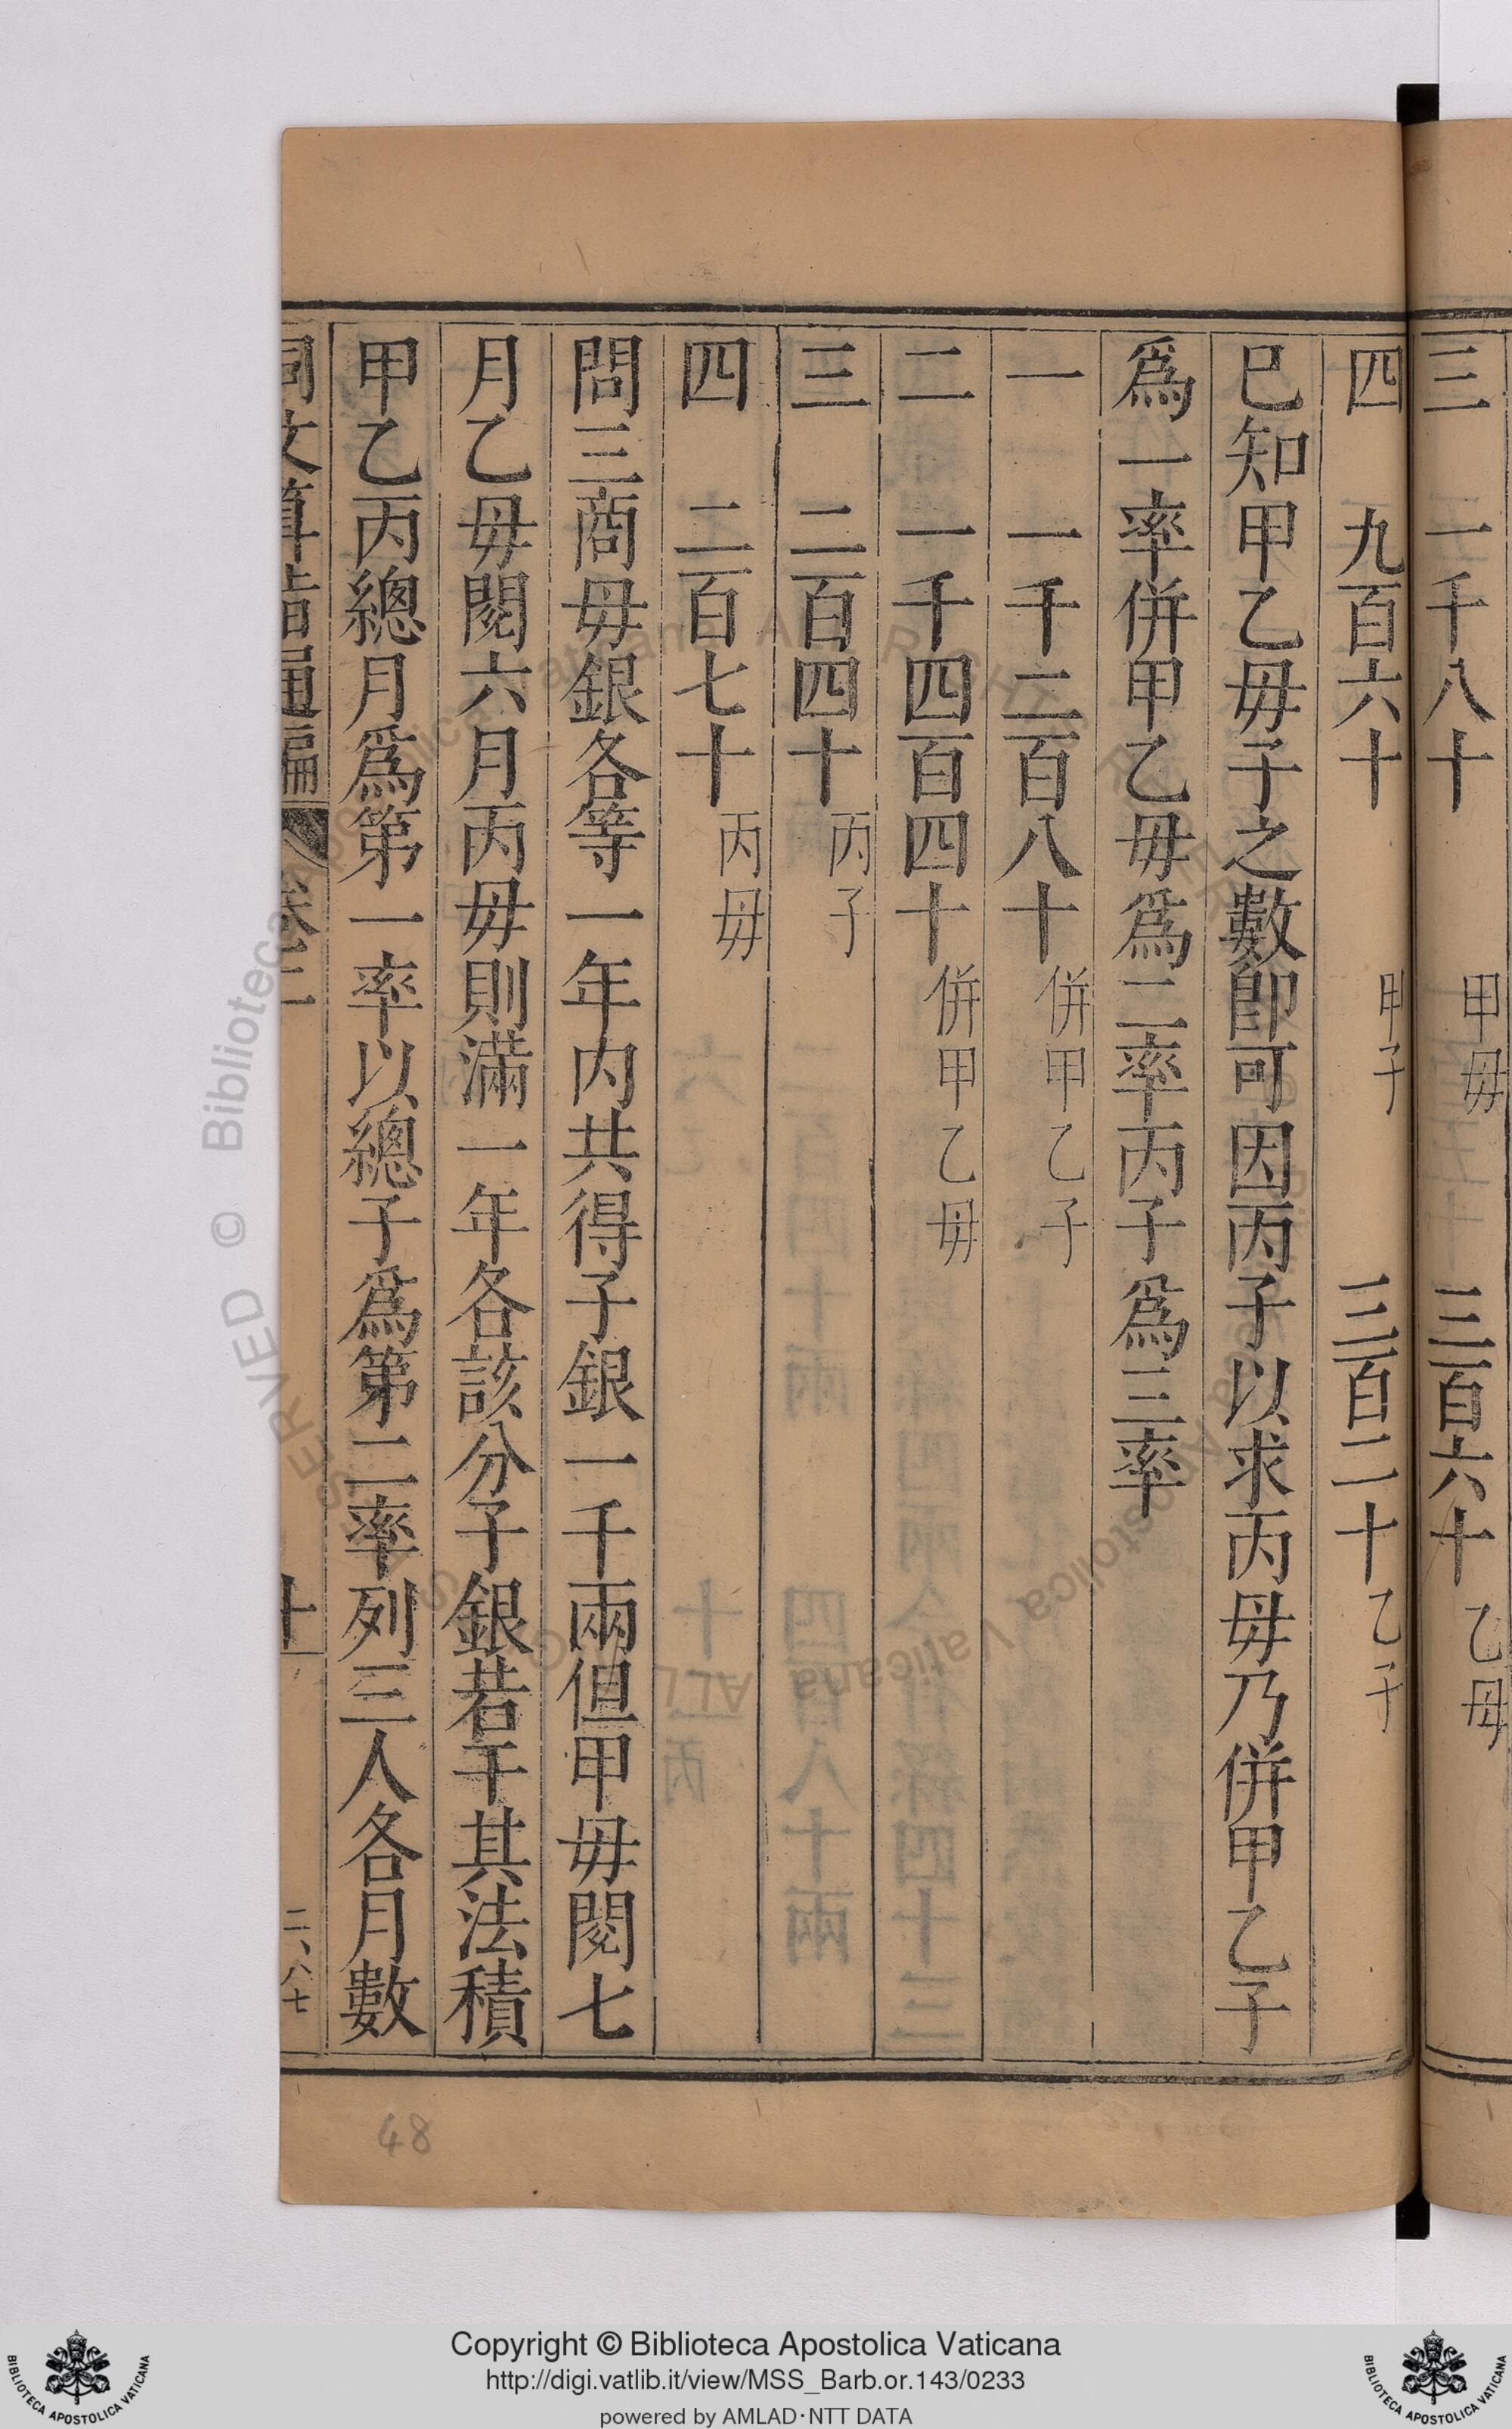 三　一千八十　甲毋　三百六十　乙毋
四　九百六十　甲子　三百二十　乙子
巳知甲乙毋子之數卽可因丙子以求丙毋乃併甲乙子
爲一率併甲乙毋爲二率丙子爲三率
一　一千二百八十　併甲乙子
二　一千四百四十　併甲乙毋
三　二百四十　丙子
四　二百七十　丙毋
問三商毋銀各等一年内共得子銀一千兩但甲毋閱七
月乙毋閱六月丙毋則滿一年各該分子銀若干其法積
甲乙丙總月爲第一率以總子爲第二率列三人各月數
同文算指通編　卷二　十　二八七
48
Copyright © Biblioteca Apostolica Vaticana
http://digi.vatlib.it/view/MSS_Barb.or.143/0233
powered by AMLAD·NTT DATA
BIBLIOTECA APOSTOLICA VATICANA
BIBLIOTECA APOSTOLICA VATICANA